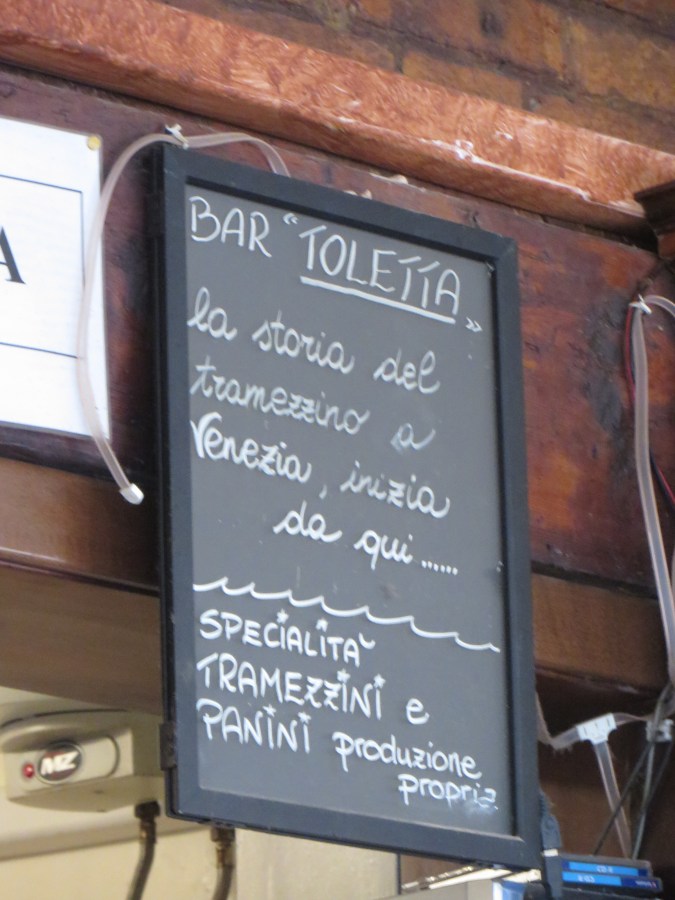 A
BAR "TOLETTA"
la storia del
tramezzino a
Venezia, inizia
da qui ......
SPECIALITA'
TRAMEZZINI e
PANINI produzione
propria
MZ